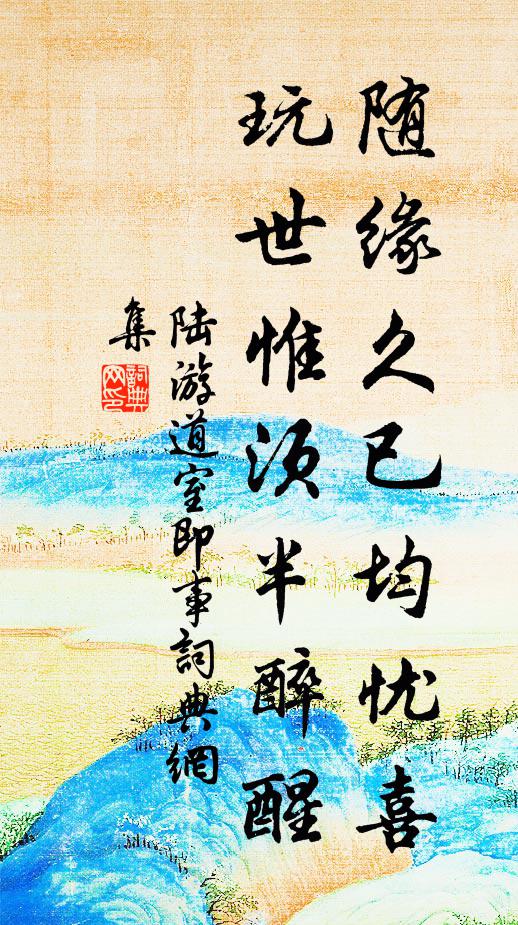 随缘久已均忧喜
玩世惟须半醉醒
陆游道室即事詞典網
集
詞典网印